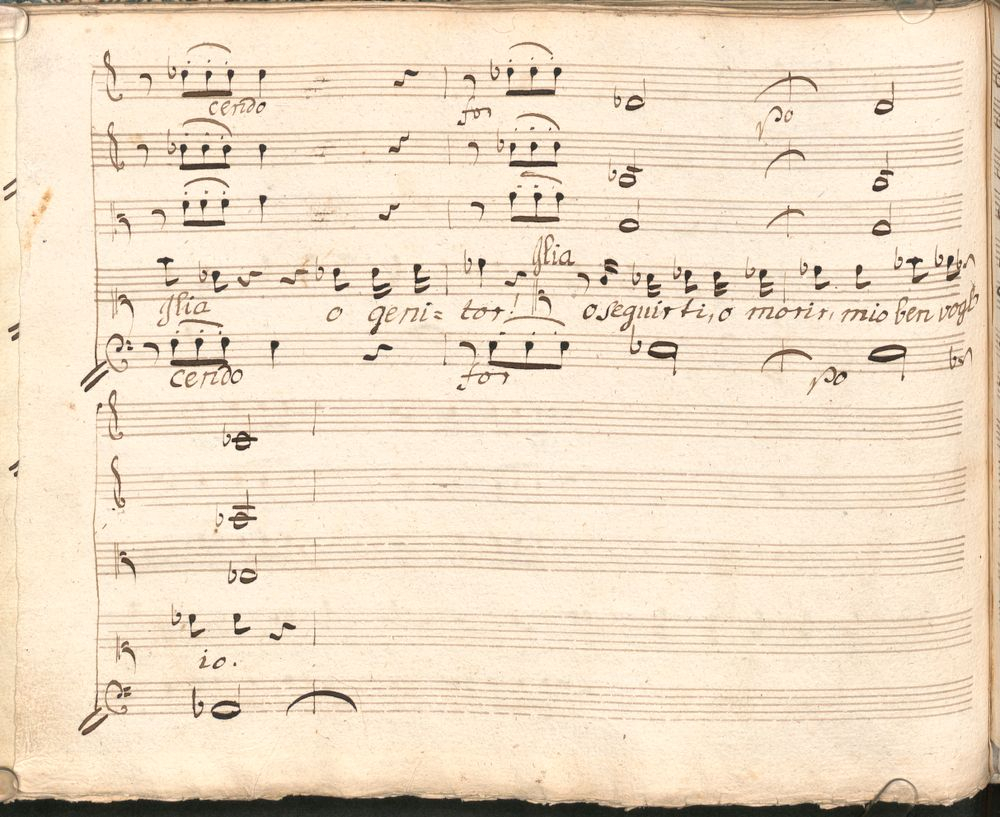 cendo for po
Glia
Glia o geni= tor! o seguirti, o morir, mio ben vogl
cendo for po
io.